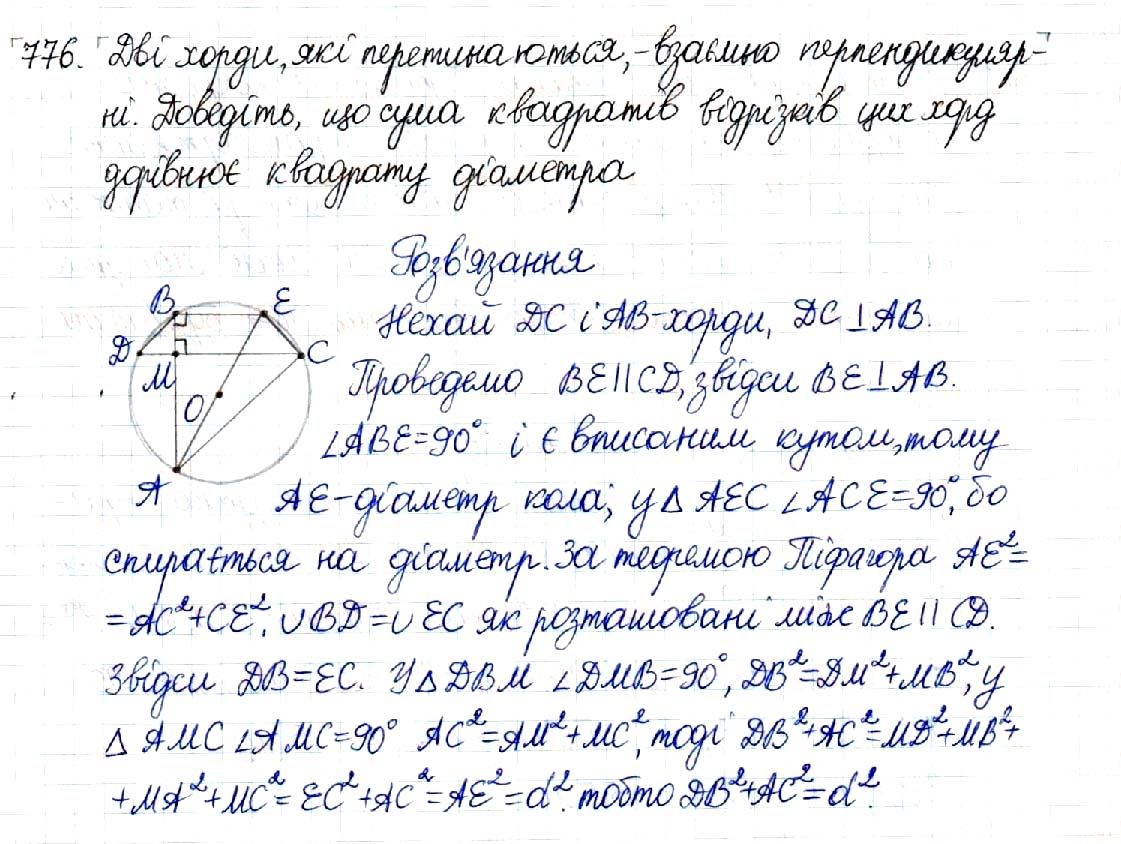 776. Дві хорди, які перетинаються, - взаємно перпендикуляр-
ні. Доведіть, що сума квадратів відрізків цих хорд
дорівнює квадрату діаметра
Розв'язання
B E
Нехай DC і AB-хорди, DC ⊥ AB.
D C
M
Проведемо BE || CD, звідси BE ⊥ AB.
O
∠ABE = 90° і є вписаним кутом, тому
A
AE - діаметр кола; у △ AEC ∠ACE = 90°, бо
спирається на діаметр. За теоремою Піфагора AE² =
= AC² + CE². ∪BD = ∪EC як розташовані між BE || CD.
Звідси DB = EC. У △ DBM ∠DMB = 90°, DB² = DM² + MB², у
△ AMC ∠AMC = 90° AC² = AM² + MC², тоді DB² + AC² = MD² + MB² +
+ MA² + MC² = EC² + AC² = AE² = d². тобто DB² + AC² = d².